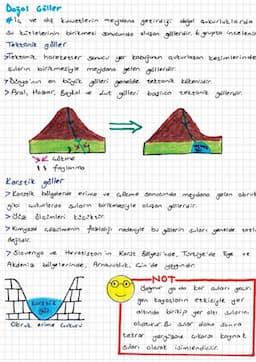 Doğal Göller
# İç ve dış kuvvetlerin meydana getirdiği doğal çukurluklarda
su kütlelerinin birikmesi sonucunda oluşan göllerdir. 6 grupta incelenir
Tektonik göller
>Tektonik hareketler sonucu yer kabuğunun çukurlaşan kesimlerinde
suların birikmesiyle meydana gelen göllerdir.
>Dünya'nın en büyük gölleri genelde tektonik kökenlidir.
>Aral, Hazar, Baykal ve Lut gölleri başlıca tektonik göllerdir.
çökme
faylanma
Karstik göller
>Karstik bölgelerde erime ve çökme sonucunda meydana gelen
gibi suların birikmesiyle oluşan göllerdir.
ölçümleri küçüktür.
>Kimyasal çözünmenin fazlalığı nedeniyle bu göllerin suları genelde
değildir.
>Slovenya ve Hırvatistan'ın Karst Bölgesi'nde, Türkiye'de Ege ve
Akdeniz bölgelerinde, Arnavutluk, Çin'de yaygındır.
karstik
göl
Obruk erime çukuru
NOT
Yağmur ya da kar suları geçirgen
kayaçların etkisiyle yer
altında birikip yer altı sularını
oluşturur. Bu sular daha sonra
tekrar yeryüzüne çıkarsa kaynak
suları olarak isimlendirilir.